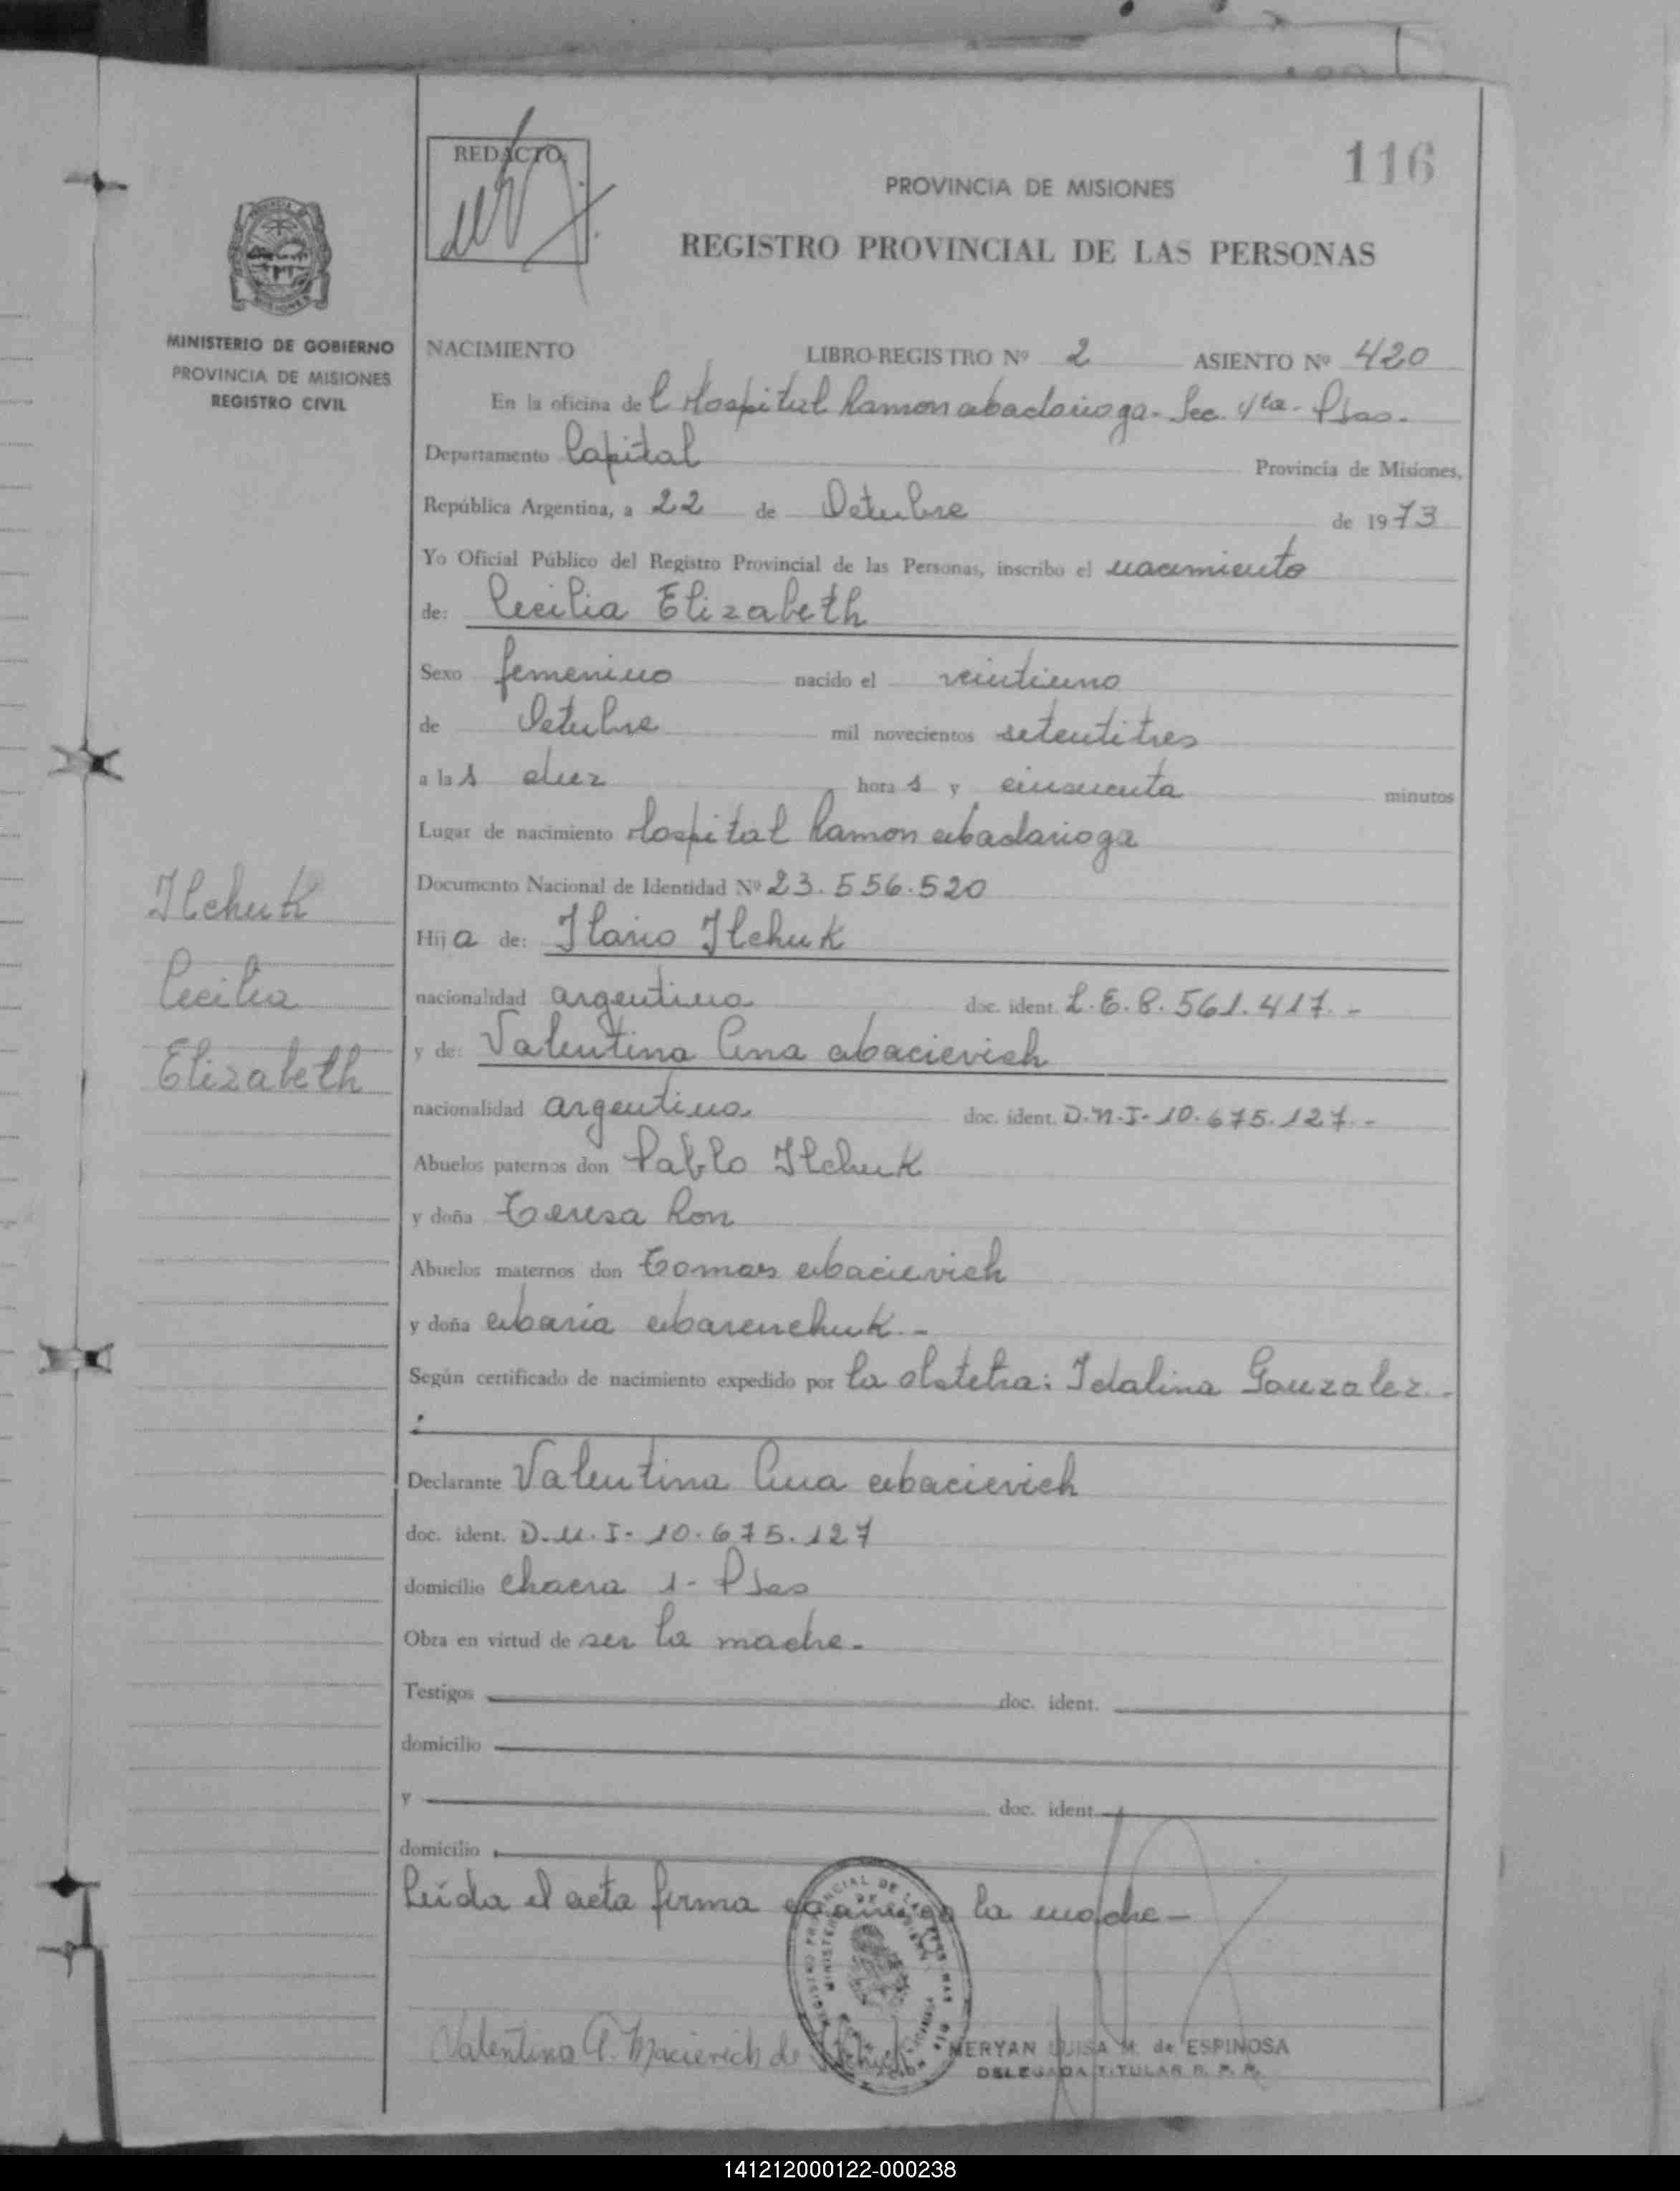 116
REDACTO
PROVINCIA DE MISIONES
REGISTRO PROVINCIAL DE LAS PERSONAS
MINISTERIO DE GOBIERNO
PROVINCIA DE MISIONES
REGISTRO CIVIL
NACIMIENTO LIBRO-REGISTRO Nº 2 ASIENTO Nº 420
En la oficina de l Hospital Ramon Madariaga - Sec. 4ta - Psas.
Departamento Capital Provincia de Misiones,
República Argentina, a 22 de Octubre de 1973
Yo Oficial Público del Registro Provincial de las Personas, inscribo el nacimiento
de: Cecilia Elizabeth
Sexo femenino nacido el veintiuno
de Octubre mil novecientos setentitres
a las diez horas y cincuenta minutos
Lugar de nacimiento Hospital Ramon Madariaga
Documento Nacional de Identidad Nº 23.556.520
Hija de: Ilario Ilchuk
nacionalidad argentina doc. ident. L.E. 8.561.417.-
y de: Valentina Ana Macievich
nacionalidad argentina doc. ident. D.N.I- 10.675.127.-
Abuelos paternos don Pablo Ilchuk
y doña Teresa Ron
Abuelos maternos don Tomas Macievich
y doña Maria Marenchuk.-
Según certificado de nacimiento expedido por la obstetra: Idalina Gonzalez.-
Declarante Valentina Ana Macievich
doc. ident. D.N.I- 10.675.127
domicilio chacra 1- Psas
Obra en virtud de ser la madre.
Testigos doc. ident.
domicilio
y doc. ident.
domicilio
Leída el acta firma conmigo la madre -
Valentina A. Macievich de Ilchuk
MERYAN LUISA M. de ESPINOSA
DELEGADA TITULAR R. P. P.
Ilchuk
Cecilia
Elizabeth
141212000122-000238